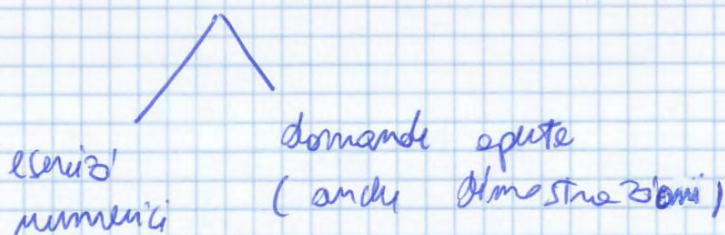 esercizi
numerici
domande aperte
(anche dimostrazioni)